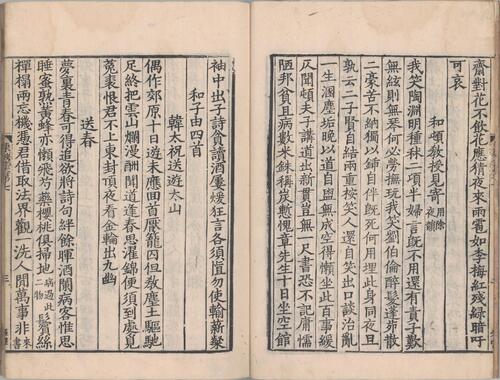 齋對花不飲花應猜夜來雨雹如李梅紅殘綠暗吁
可哀
和頓教授見寄用除夜韻
我笑陶淵明種秫二頃半婦言旣不用還有責子歎
無絃則無琴何必勞撫玩我笑劉伯倫醉髮蓬茆散
二豪苦不納獨以鍤自伴旣死何用埋此身同夜旦
孰云二子賢自結兩重按笑人還自笑出口談治亂
一生溷塵垢晚以道自盥無成空得懶坐此百事緩
仄聞頓夫子講道出新貫豈無一尺書恐不記庸懦
陋邦貧且病數米銖稱炭慙愧章先生十日坐空館
袖中出子詩貪讀酒屢煖狂言各須愼勿使輸薪粲
和子由四首
韓太祝送遊太山
偶作郊原十日遊未應回首厭籠囚但教塵土驅馳
足終把雲山爛漫酬聞道逢春思濯錦便須到處覓
菟裘恨君不上東封頂夜看金輪出九幽
送春
夢裏青春可得追欲將詩句絆餘暉酒闌病客惟思
睡蜜熟黃蜂亦懶飛芍藥櫻桃俱掃地病過此二物鬢絲
禪榻兩忘機憑君借取法界觀一洗人間萬事非來書